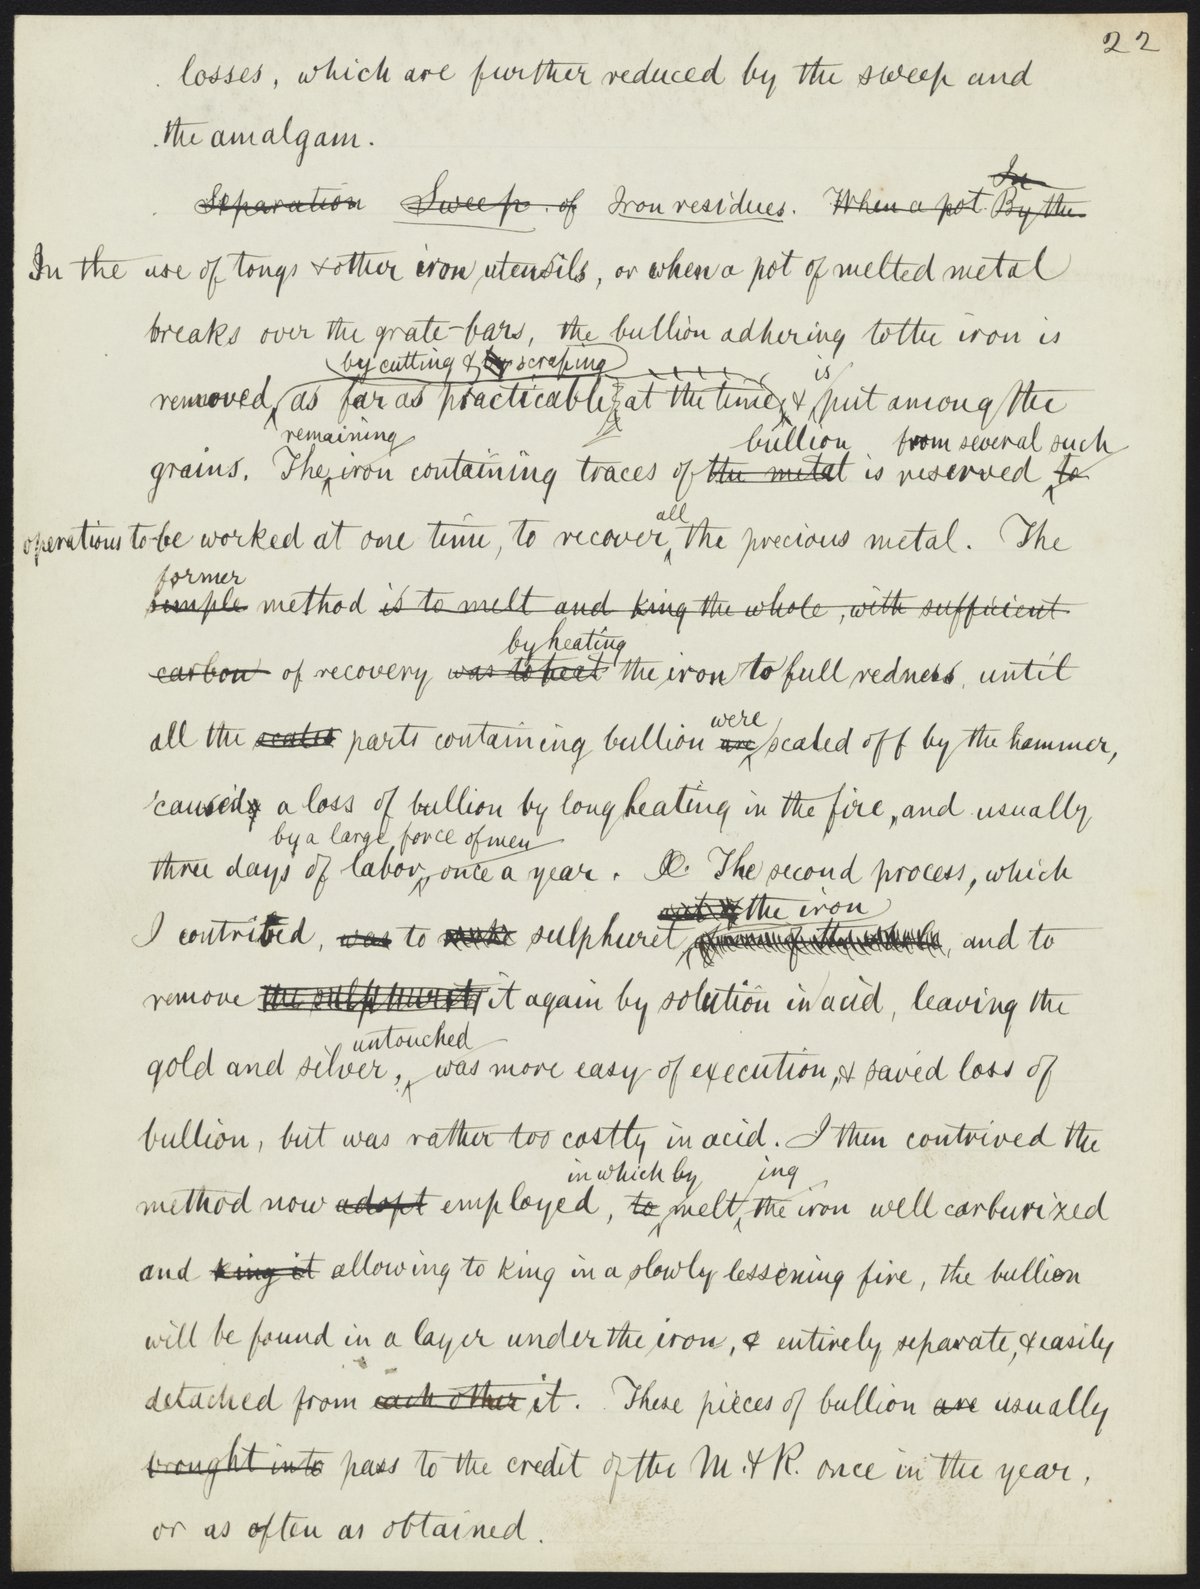 22
losses, which are further reduced by the sweep and
the amalgam.
In
Separation Sweep of Iron residues. When a pot By the
In the use of tongs & other iron utensils, or when a pot of melted metal
breaks over the grate-bars, the bullion adhering to the iron is
by cutting & by scraping is
removed, as far as practicable, at the time, & put among the
remaining bullion from several such
grains. The iron containing traces of the metal is reserved to
all
operations to be worked at one time, to recover the precious metal. The
former
simple method is to melt and king the whole, with sufficient
by heating
carbon of recovery was to heat the iron to full redness, until
were
all the scales parts containing bullion are scaled off by the hammer,
caused a loss of bullion by long heating in the fire, and usually
by a large force of men
three days of labor, once a year. The second process, which
the iron
I contrived, was to make sulphuret, and to
remove the sulphuret it again by solution in acid, leaving the
untouched
gold and silver, was more easy of execution, & saved loss of
bullion, but was rather too costly in acid. I then contrived the
in which by ing
method now adopt employed, to melt the iron well carburized
and king it allowing to king in a slowly lessening fire, the bullion
will be found in a layer under the iron, & entirely separate, & easily
detached from each other it. These pieces of bullion are usually
brought into pass to the credit of the M. & R. once in the year,
or as often as obtained.